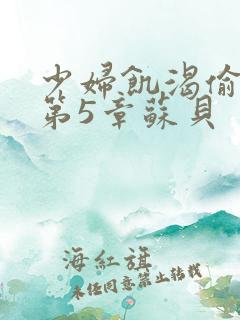 少婦飢渴偷
第5章蘇貝
海紅旗
未经同意禁止转载